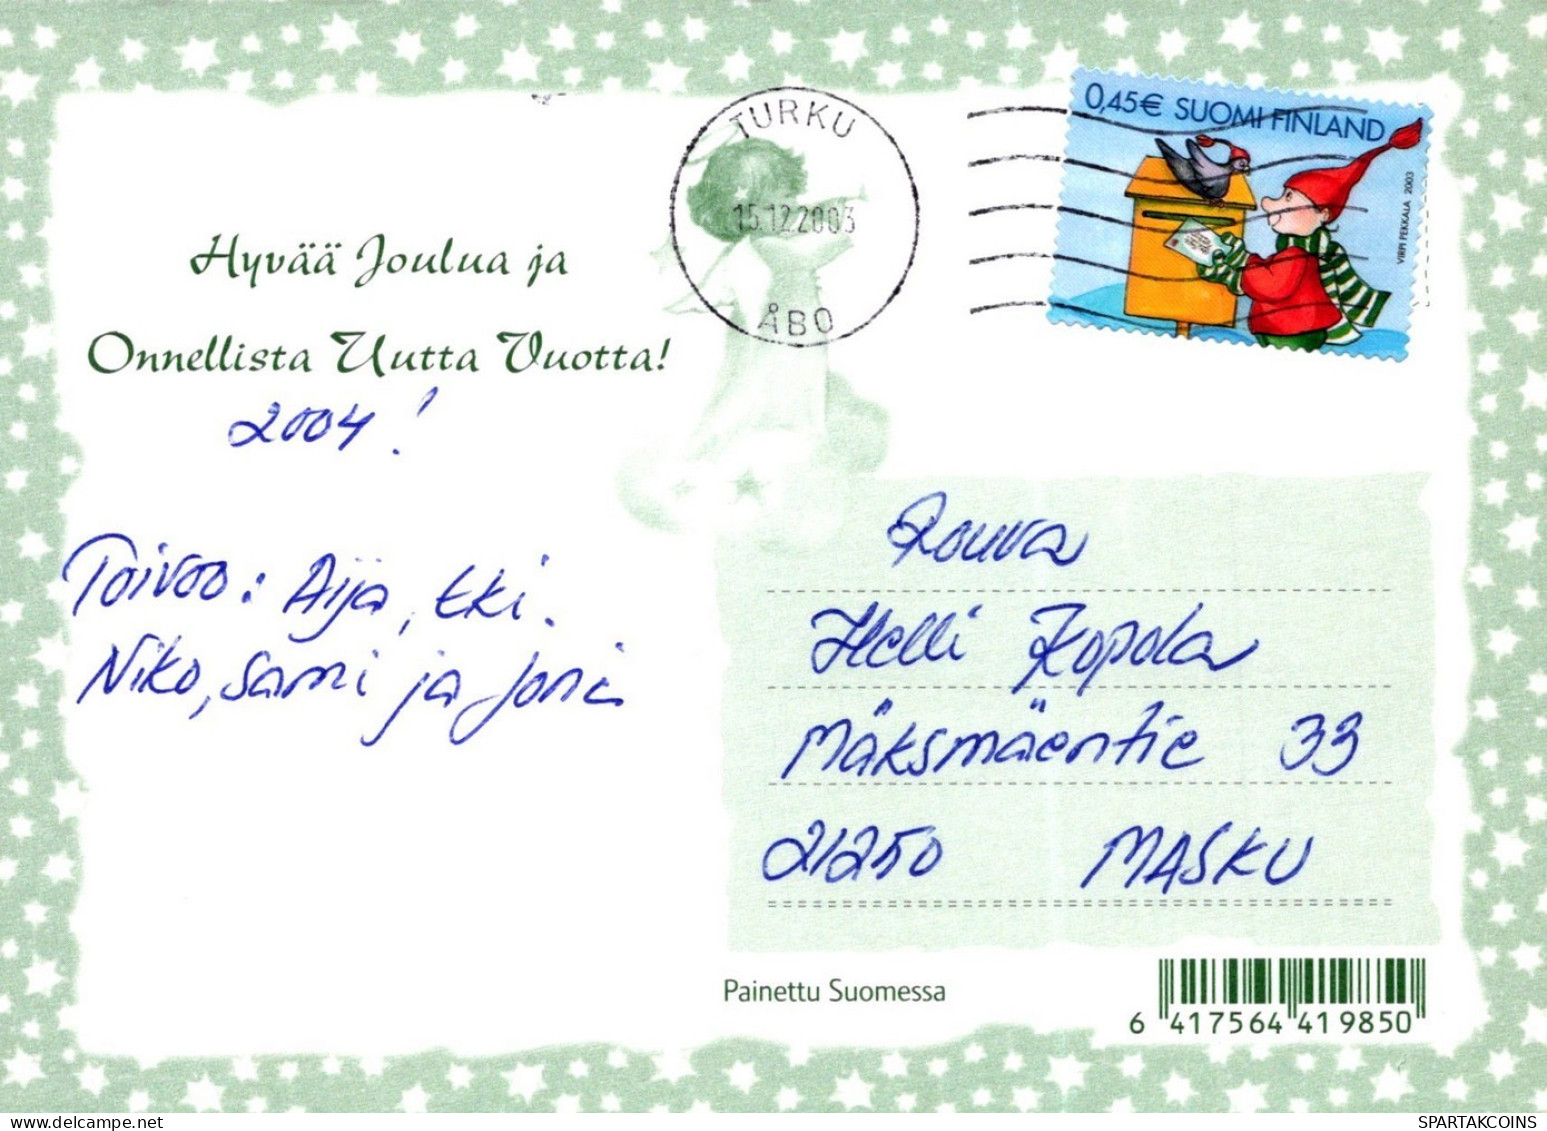 TURKU
15.12.2003
ÅBO
0,45€ SUOMI FINLAND
VIRPI PEKKALA 2003
Hyvää Joulua ja
Onnellista Uutta Vuotta!
2004!
Toivoo: Aija, Eki.
Niko, Sami ja Joni
Rouva
Helli Kopola
Mäksmäentie 33
21250 MASKU
Painettu Suomessa
6 417564 419850
SPARTAKCOINS